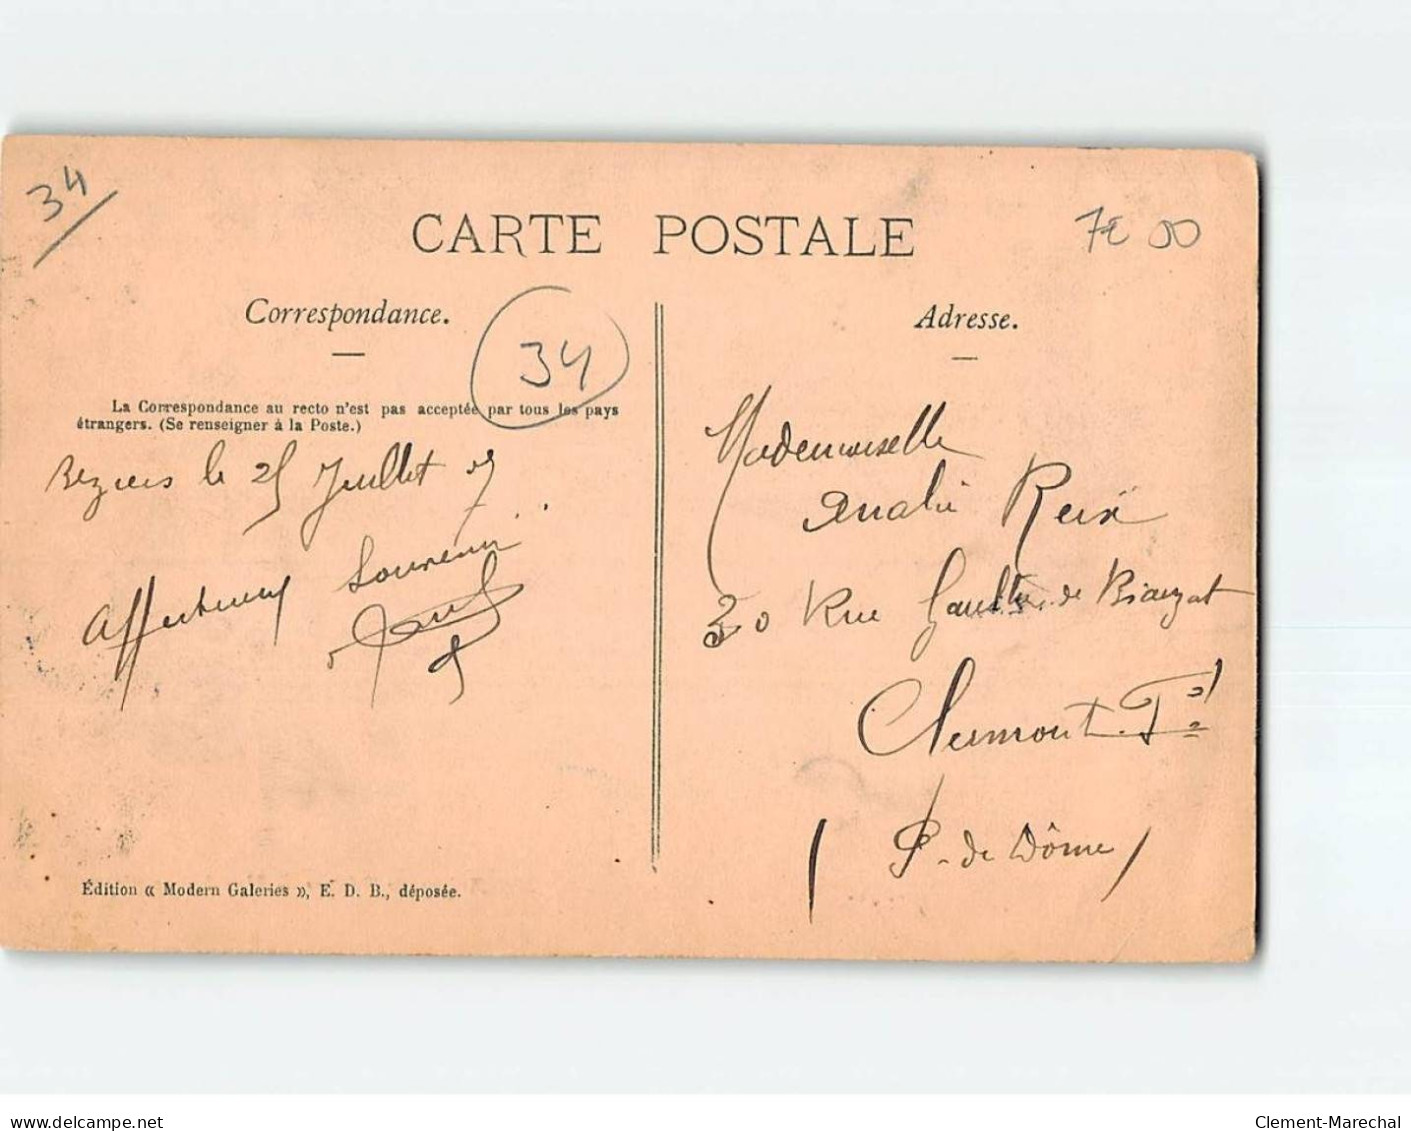 34
CARTE POSTALE
7€ 00
Correspondance.
34
La Correspondance au recto n'est pas acceptée par tous les pays
étrangers. (Se renseigner à la Poste.)
Beziers le 25 Juillet
Affectueux Souvenir
Édition « Modern Galeries », E. D. B., déposée.
Adresse.
Mademoiselle
Reix
30 Rue Gaultier de Biauzat
Clermont-Fd
P. de Dôme
www.delcampe.net
Clement-Marechal